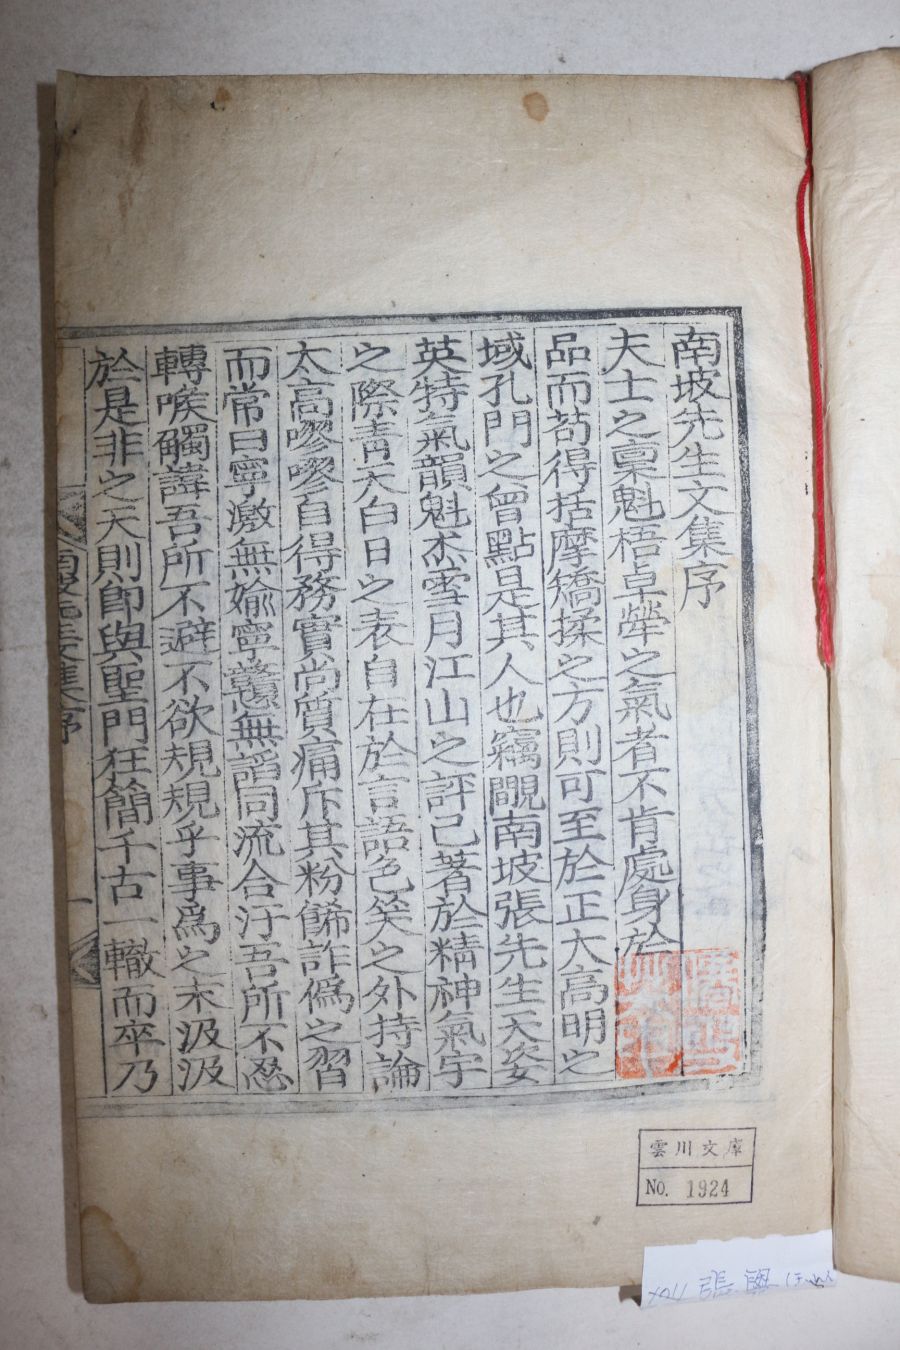 南坡先生文集序
夫士之稟魁梧卓犖之氣者不肯處身於
品而苟得括摩矯揉之方則可至於正大高明之
域孔門之曾點是其人也竊覸南坡張先生天姿
英特氣韻魁杰雪月江山之評己著於精神氣宇
之際靑天白日之表自在於言語色笑之外持論
太高嘐嘐自得務實尚質痛斥其粉餙詐僞之習
而常曰寧激無媮寧戇無謟同流合汙吾所不忍
轉喉觸諱吾所不避不欲規規乎事爲之末汲汲
於是非之天則卽與聖門狂簡千古一轍而卒乃
南坡先生文集序
一
雲川文庫
No. 1924
張